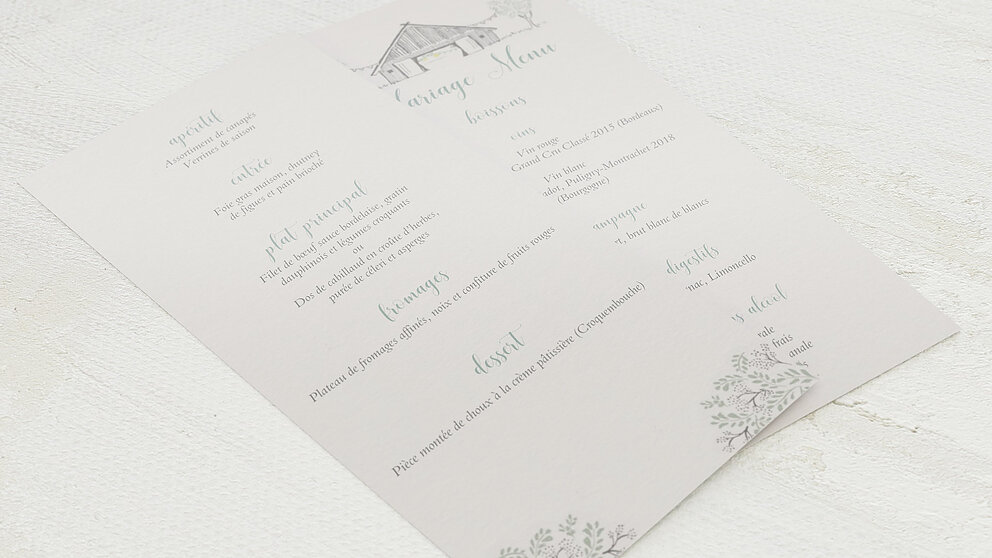 apéritif
Assortiment de canapés
Verrines de saison
entrée
Foie gras maison, chutney
de figues et pain brioché
plat principal
Filet de bœuf sauce bordelaise, gratin
dauphinois et légumes croquants
ou
Dos de cabillaud en croûte d'herbes,
purée de céleri et asperges
fromages
Plateau de fromages affinés, noix et confiture de fruits rouges
dessert
Pièce montée de choux à la crème pâtissière (Croquembouche)
ariage Menu
boissons
vins
Vin rouge
Grand Cru Classé 2015 (Bordeaux)
Vin blanc
ador, Puligny-Montrachet 2018
(Bourgogne)
ampagne
brut blanc de blancs
digestifs
nac, Limoncello
alcool
rale
frais
anale